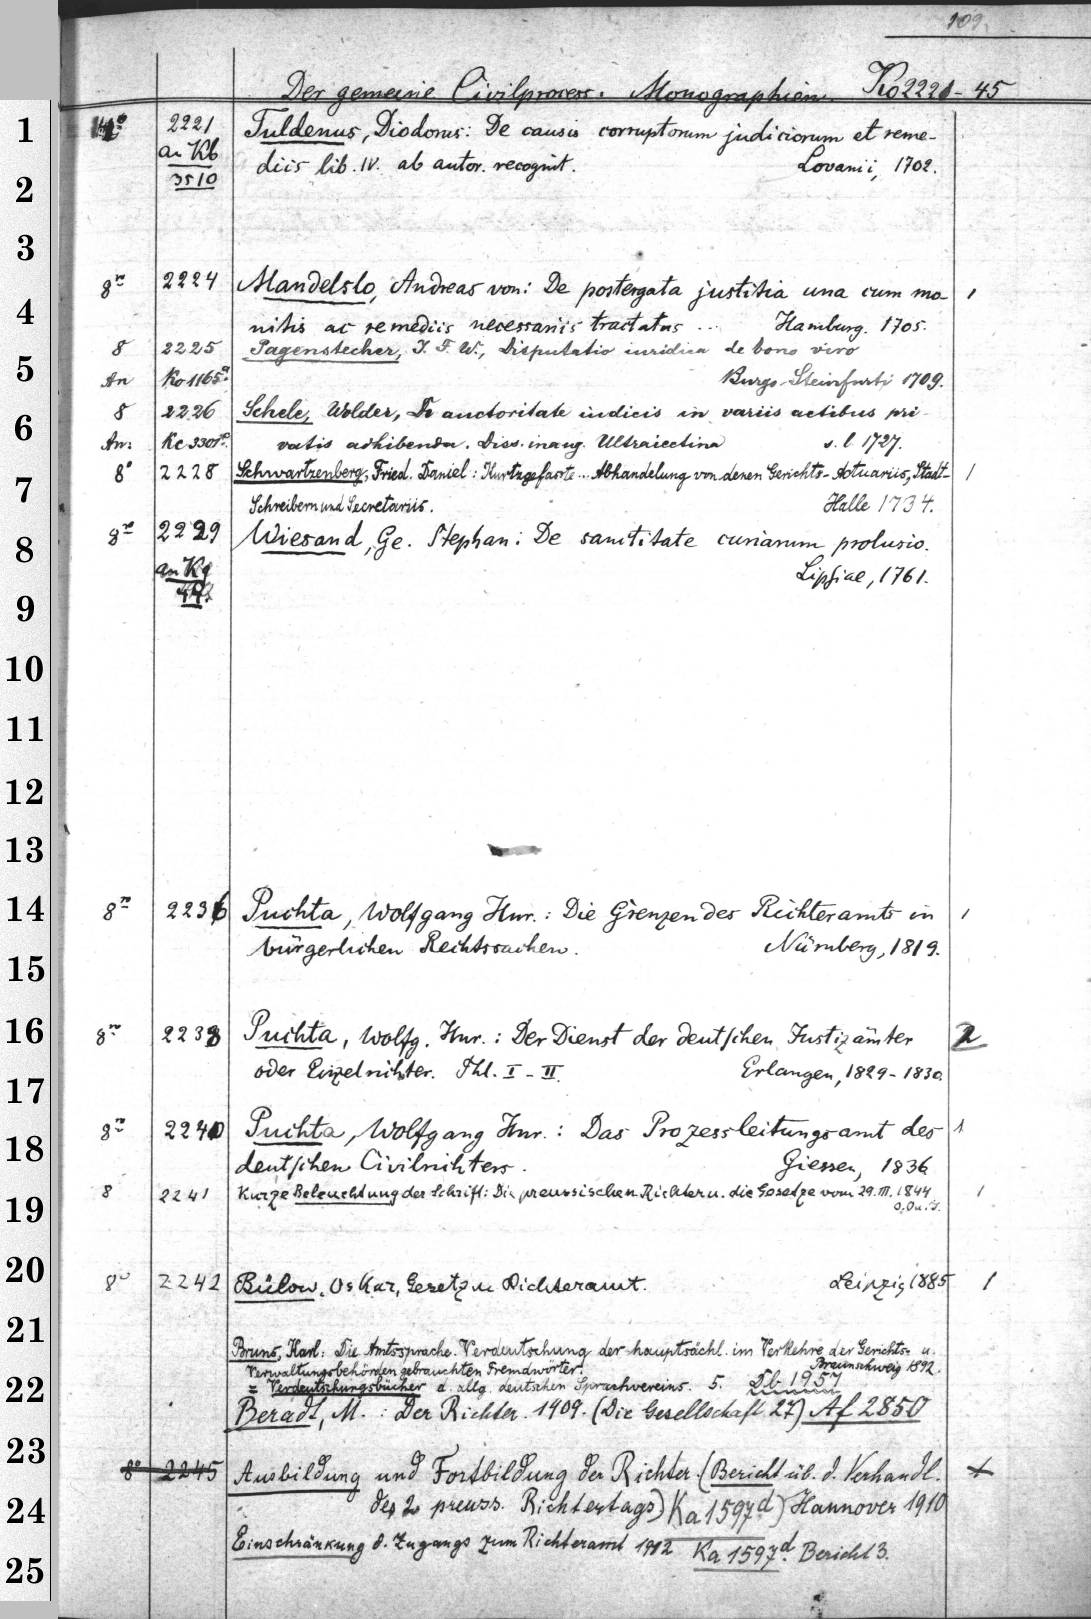 109.
Der gemeine Civilprocess. Monographien. Ko 2221-45
1
2
3
4
5
6
7
8
9
10
11
12
13
14
15
16
17
18
19
20
21
22
23
24
25
2221 Tuldenus, Diodorus: De causis corruptorum judiciorum et reme-
an Kb diis lib. IV. ab autor. recognit. Lovanii, 1702.
3510
8° 2224 Mandelslo, Andreas von: De postergata justitia una cum mo- 1
nitis ac remediis necessariis tractatus ... Hamburg. 1705.
8 2225 Pagenstecher, J. F. W., Disputatio iuridica de bono viro
An Ko 1165a. Burgo-Steinfurti 1709.
8 2226 Schele, Wolder, De auctoritate iudicis in variis actibus pri-
An: Kc 3301 vatis adhibenda. Diss. inaug. Ultraiectina s. l. 1727.
8° 2228 Schwartzenberg, Fried. Daniel: Kurtzgefasste... Abhandelung von denen Gerichts-Actuariis, Stadt- 1
Schreibern und Secretariis. Halle 1734.
8° 2229 Wiesand, Ge. Stephan: De sanctitate curiarum prolusio.
an Kg Lipsiae, 1761.
8° 2236 Puchta, Wolfgang Hnr.: Die Grenzen des Richteramts in 1
bürgerlichen Rechtssachen. Nürnberg, 1819.
8° 2238 Puchta, Wolfg. Hnr.: Der Dienst der deutschen Justizämter 2
oder Einzelrichter. Thl. I-II. Erlangen, 1829-1830.
8° 2240 Puchta, Wolfgang Hnr.: Das Prozessleitungsamt des 1
deutschen Civilrichters. Giessen, 1836
8 2241 Kurze Beleuchtung der Schrift: Die preussischen Richter u. die Gesetze vom 29. III. 1844 1
o. O u. J.
8° 2242 Bülow, Oskar, Gesetz u Richteramt. Leipzig 1885 1
Bruns, Karl: Die Amtssprache. Verdeutschung der hauptsächl. im Verkehre der Gerichts- u.
Verwaltungsbehörden gebrauchten Fremdwörter. Braunschweig 1892.
= Verdeutschungsbücher d. allg. deutschen Sprachvereins. 5. Db 1957
Beradt, M.: Der Richter. 1909. (Die Gesellschaft 27) Af 2850
8° 2245 Ausbildung und Fortbildung der Richter. (Bericht üb. d. Verhandl.
des 2 preuss. Richtertags) Ka 1597d) Hannover 1910
Einschränkung d. Zugangs zum Richteramt 1912 Ka 1597d. Bericht 3.